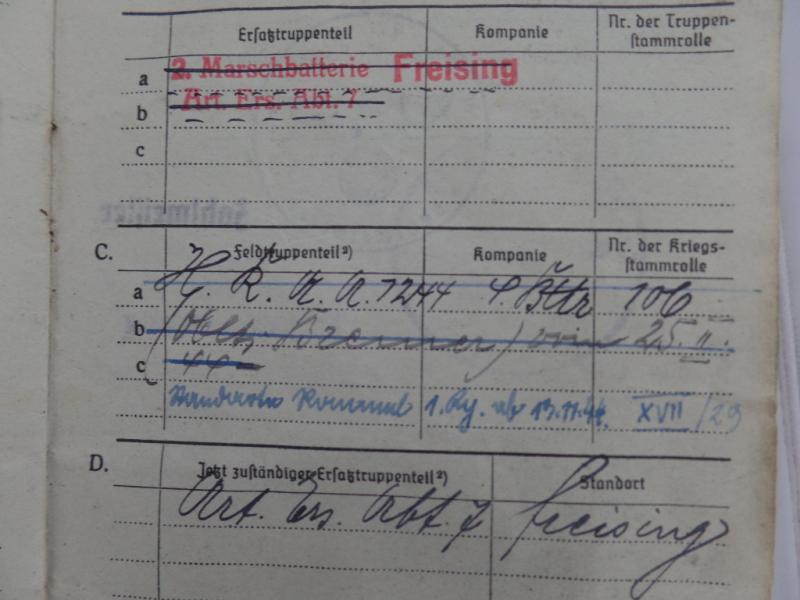 Ersatztruppenteil Kompanie Nr. der Truppen-
stammrolle
a 2. Marschbatterie Freising
b Art. Ers. Abt. 7
c
C. Feldtruppenteil²) Kompanie Nr. der Kriegs-
stammrolle
a H. K. A. A. 1244 4 Bttr 106
b Bremer) vom 25. II.
c 44
1. Kp. ab 13.11.44. XVII / 29
D. Jetzt zuständiger Ersatztruppenteil²) Standort
Art. Ers. Abt 7 Freising